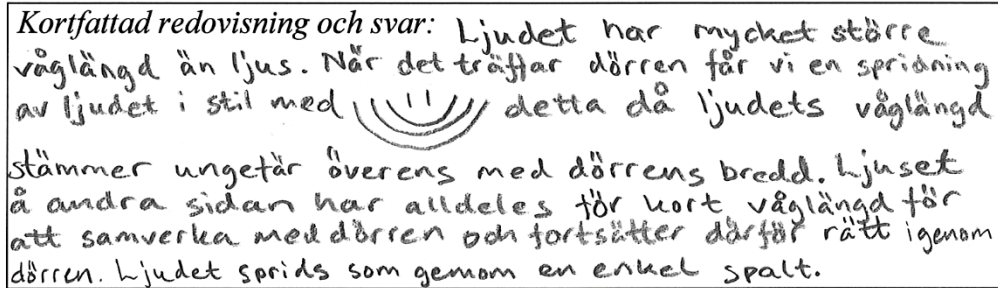 Kortfattad redovisning och svar: Ljudet har mycket större
våglängd än ljus. När det träffar dörren får vi en spridning
av ljudet i stil med detta då ljudets våglängd
stämmer ungefär överens med dörrens bredd. Ljuset
å andra sidan har alldeles för kort våglängd för
att samverka med dörren och fortsätter därför rätt igenom
dörren. Ljudet sprids som genom en enkel spalt.